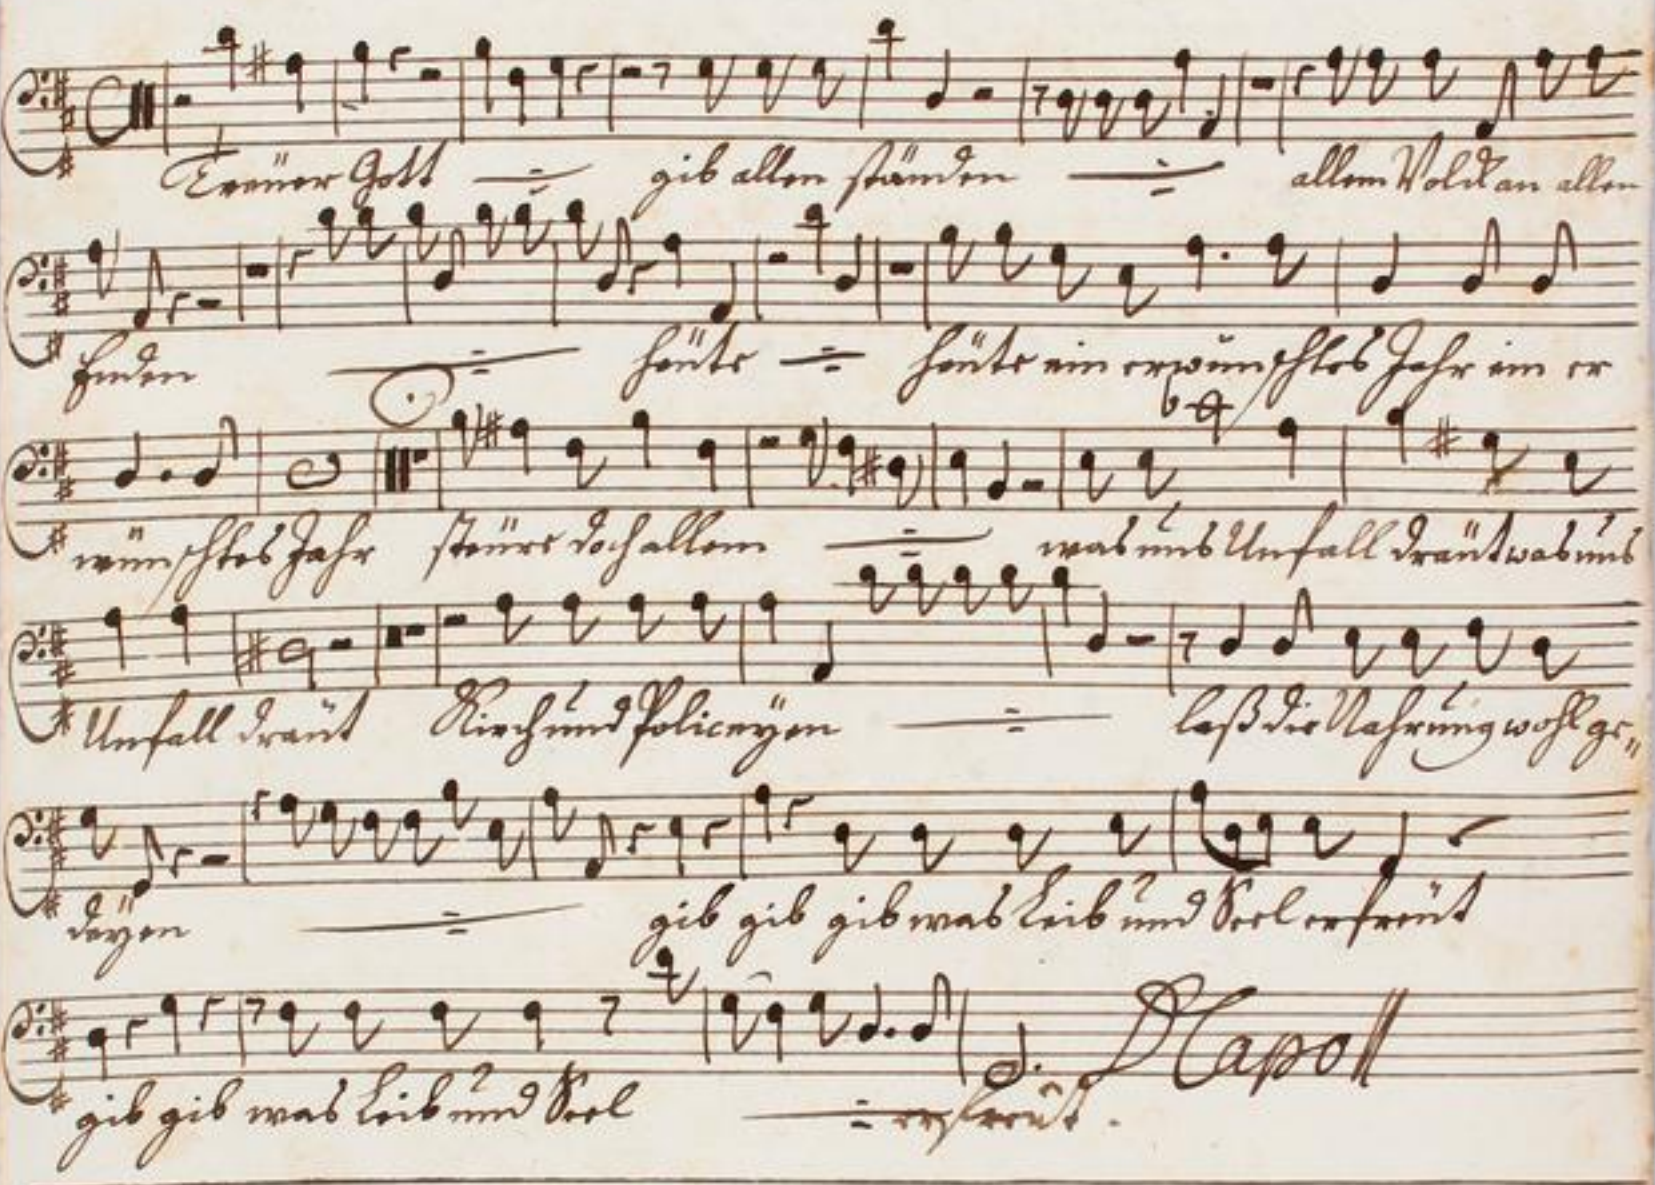 Treüer Gott gib allen ständen allem Volck an allen
Enden heüte heüte ein erwünschtes Jahr ein er
wünschtes Jahr steüre doch allem was uns Unfall dräut was uns
Unfall dräut Kirch und Policeyen laß die Nahrung wohl ge„
deyen gib gib gib was Leib und Seel erfreüt
gib gib was Leib und Seel erfreüt. D Capo